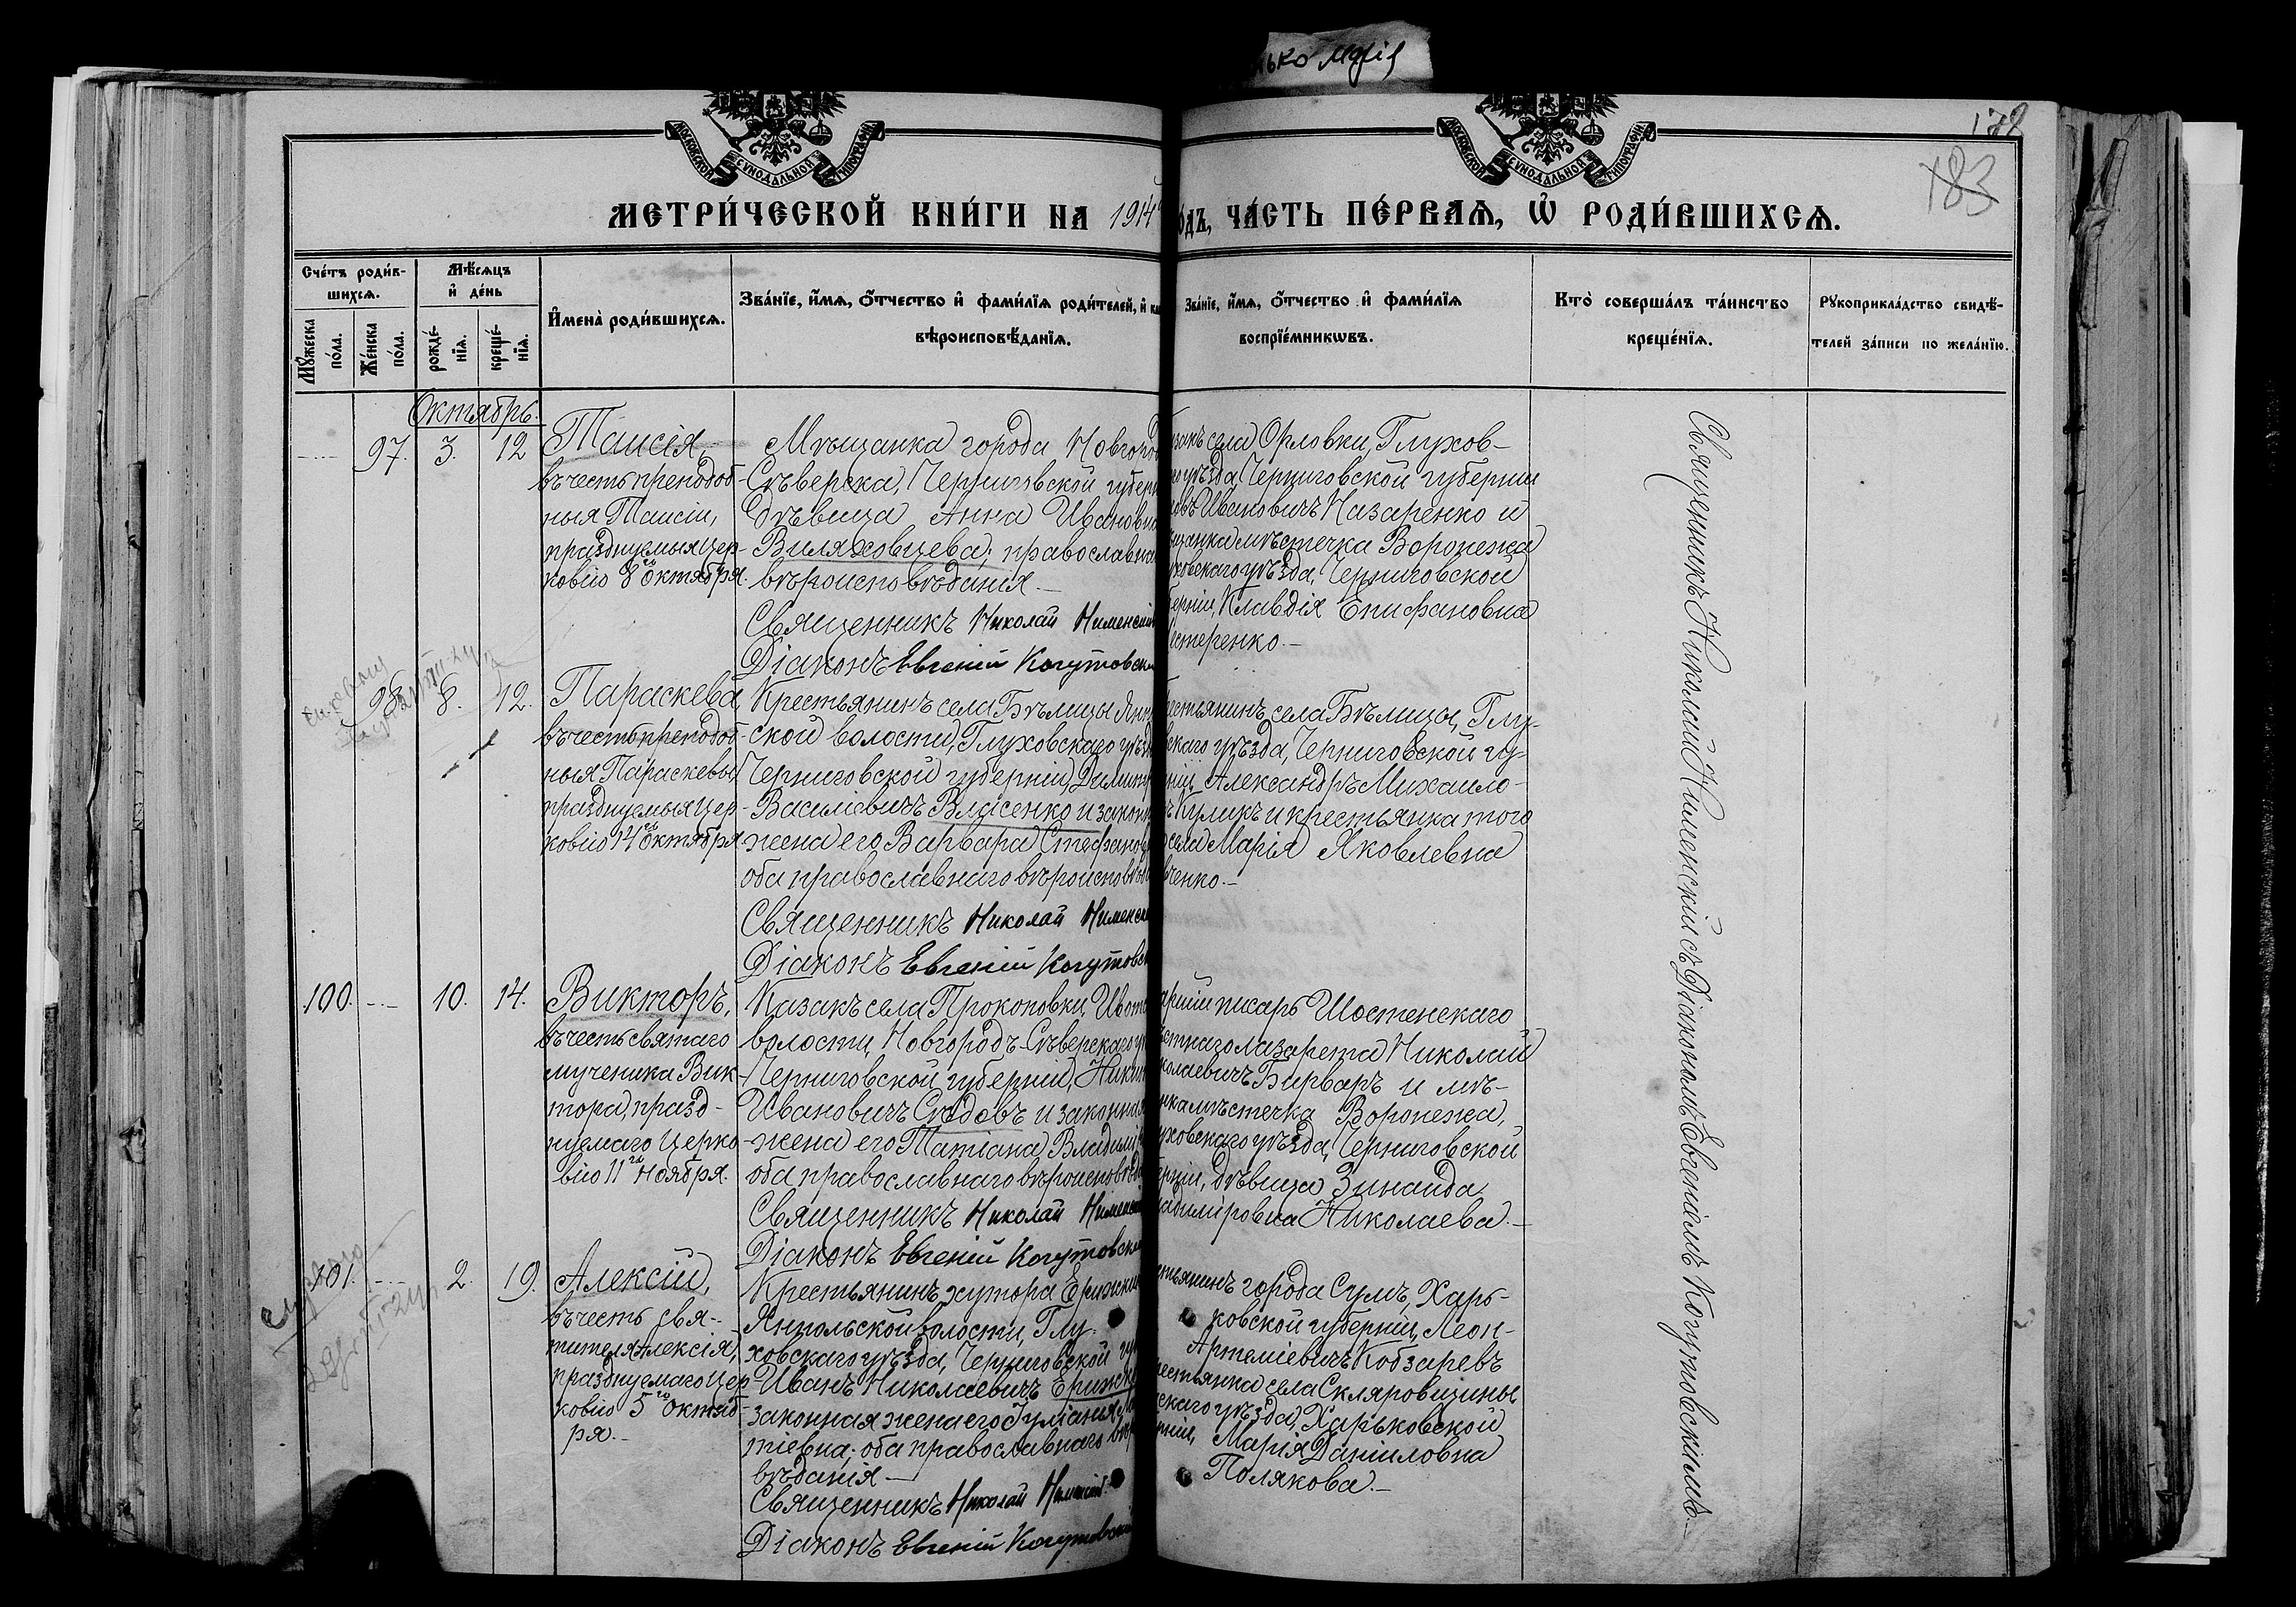 ько Марія
МОСКОВСКОЙ СѴНОДАЛЬНОЙ ТИПОГРАФІИ
МОСКОВСКОЙ СѴНОДАЛЬНОЙ ТИПОГРАФІИ
178
183
МЕТРИ́ЧЕСКОЙ КНИ́ГИ НА 1914
о́дъ, ЧА́СТЬ ПЕ́РВАѦ, Ѽ РОДИ́ВШИХСѦ.
Сче́тъ роди́в-
шихсѧ.
Мꙋ́жеска по́ла.
Же́нска по́ла.
Мѣ́сѧцъ
и҆ де́нь
рожде́-
нїѧ.
креще́-
нїѧ.
И҆мена̀ роди́вшихсѧ.
Зва́нїе, и҆́мѧ, ѻ҆́тчество и҆ фами́лїѧ роди́телей, и҆ ка
вѣроисповѣ́данїѧ.
Зва́нїе, и҆́мѧ, ѻ҆́тчество и҆ фами́лїѧ
воспрїе́мникѡвъ.
Кто̀ соверша́лъ та́инство
креще́нїѧ.
Рꙋкоприкла́дство свидѣ́-
телей за́писи по жела́нїю.
Октябрь.
97. 3. 12
Таисія,
въ честь преподоб-
ныя Таисіи,
празднуемыя цер-
ковію 8го октября.
Мѣщанка города Новгоро
Сѣверска, Черниговской губерн
дѣвица Анна Ивановна
Виляховцева; православна
вѣроисповѣданія.—
Священникъ Николай Нименскій
Діаконъ Евгеній Когутовск
закъ села Орловки, Глухов-
уѣзда, Черниговской губерніи
Ивановичъ Назаренко и
щанка мѣстечка Воронежа
уховскаго уѣзда, Черниговской
берніи, Клавдія Епифановна
естеренко.—
98. 8. 12.
Параскева,
въ честь преподоб-
ныя Параскевы,
празднуемыя цер-
ковію 14го октября
Крестьянинъ села Бѣлицы Янп
ской волости, Глуховскаго уѣзд
Черниговской губерніи, Димит
Василіевичъ Власенко и законн
жена его Варвара Стефанов
оба православнаго вѣроисповѣд
Священникъ Николай Нименск
Діаконъ Евгеній Когутовск
естьянинъ села Бѣлицы, Глу-
вскаго уѣзда, Черниговской гу-
ніи, Александръ Михаило-
ъ Куликъ и крестьянка того
села Марія Яковлевна
ченко.—
100. 10. 14.
Викторъ,
въ честь святаго
мученика Вик-
тора, празд-
нуемаго церко-
вію 11го ноября.
Казакъ села Прокоповки, Ивотс
волости, Новгородъ-Сѣверскаго у
Черниговской губерніи, Никит
Ивановичъ Сѣдовъ и законная
жена его Татіана Владимір
оба православнаго вѣроисповѣда
Священникъ Николай Нименск
Діаконъ Евгеній Когутовск
аршій писарь Шостенскаго
стнаго лазарета Николай
колаевичъ Бирваръ и мѣ-
нка мѣстечка Воронежа,
уховскаго уѣзда, Черниговской
ерніи, дѣвица Зинаида
адиміровна Николаева.—
101. 2. 19.
Алексій,
въ честь свя-
тителя Алексія,
празднуемаго цер-
ковію 5го октяб-
ря.—
Крестьянинъ хутора Ерижск
Янпольской волости, Глу-
ховскаго уѣзда, Черниговской гу
Иванъ Николаевичъ Ерижск
законная жена его Іуліанія
тіевна; оба православнаго вѣр
вѣданія—
Священникъ Николай Нименскій
Діаконъ Евгеній Когутовскі
стьянинъ города Сумъ, Харь-
ковской губерніи, Леон-
Артеміевичъ Кобзаревъ
рестьянка села Скляровщины
скаго уѣзда, Харьковской
рніи, Марія Даніиловна
Полякова.—
Священникъ Николай Нименскій съ Діакономъ Евгеніемъ Когутовскимъ.—